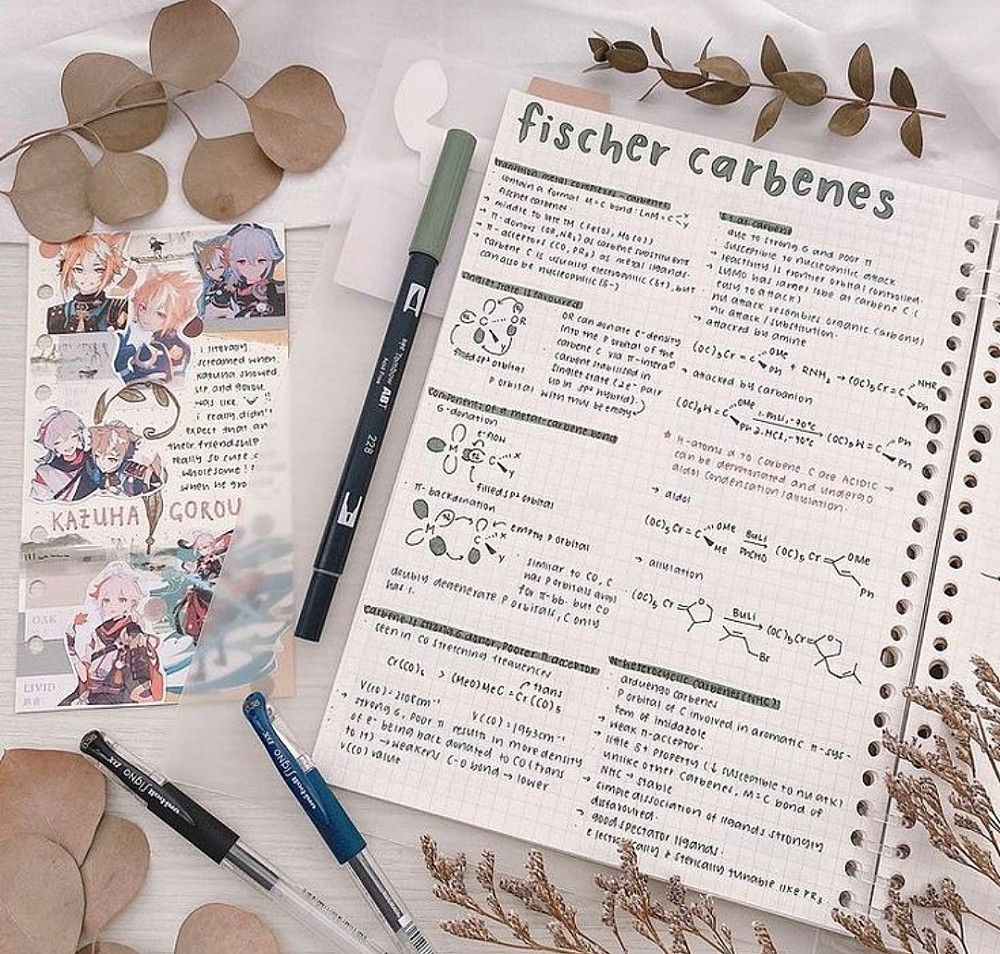 fischer carbenes
transition metal complexes - carbenes
contain a formal M=C bond: LnM=C
fischer carbenes:
→ middle to late TM (Fe(0), Mo(0))
→ π-donors (OR, NR₂) as carbene substituents
→ π-acceptors (CO, PR₃) as metal ligands.
carbene C is usually electrophilic (δ+), but
can also be nucleophilic (δ-)
singlet state is favoured
OR
filled sp² orbital
p orbital
OR can donate e⁻ density
into the p orbital of the
carbene C via π-interac
carbene stabilised in
singlet state (2e⁻ pair
up in sp² hybrid).
with this p empty.
components of a metal-carbene bond
σ-donation
e⁻ flow
M C X
Y
filled sp² orbital
π-backdonation
empty p orbital
M C X
Y
similar to CO, C
has p orbitals avail
for π-bb. but CO
doubly degenerate p orbitals, C only
has 1.
carbene is strong σ donor, poorer π acceptor
seen in CO stretching frequencies
Cr(CO)₆ > (MeO)MeC=Cr(CO)₅
trans
V(CO) = 2108cm⁻¹
V(CO) = 1953cm⁻¹
strong σ, poor π results in more density
of e⁻ being back donated to CO (trans
to it) → weakens C-O bond → lower
V(CO) value
δ+ at carbene
due to strong σ and poor π
→ susceptible to nucleophilic attack
→ reactivity is frontier orbital controlled.
LUMO has larger lobe at carbene C (:
easy to attack)
→ nu attack resembles organic carbonyl
nu attack / substitution.
→ attacked by amine
(OC)₅Cr=C OMe Ph + RNH₂ → (OC)₅Cr=C NHR Ph
→ attacked by carbanion
(OC)₅W=C OMe Ph 1. PhLi, -78°C 2. HCl, -78°C (OC)₅W=C Ph Ph
* H-atoms α to carbene C are ACIDIC →
can be deprotonated and undergo
aldol condensation/alkylation.
→ aldol
(OC)₅Cr=C OMe Me BuLi PhCHO (OC)₅Cr OMe Ph
→ alkylation
(OC)₅Cr O BuLi Br (OC)₅Cr O
N-heterocyclic carbenes (NHC)
arduengo carbenes
p orbital of C involved in aromatic π-sys-
tem of imidazole
→ weak π-acceptor.
→ little δ+ property (↓ susceptible to nu atk)
→ unlike other carbenes, M=C bond of
NHC → stable
→ simple dissociation of ligands strongly
disfavoured.
→ good spectator ligands.
→ electronically & sterically tunable like PR₃
i literally
screamed when
kazuha showed
up and gorou
was like
i really didn't
expect that an
their friendship
really so cute &
wholesome !!
when he gro
KAZUHA GOROU
OAK
LIVID
Tombow ABT
228
uni-ball Signo DX
uni-ball Signo DX